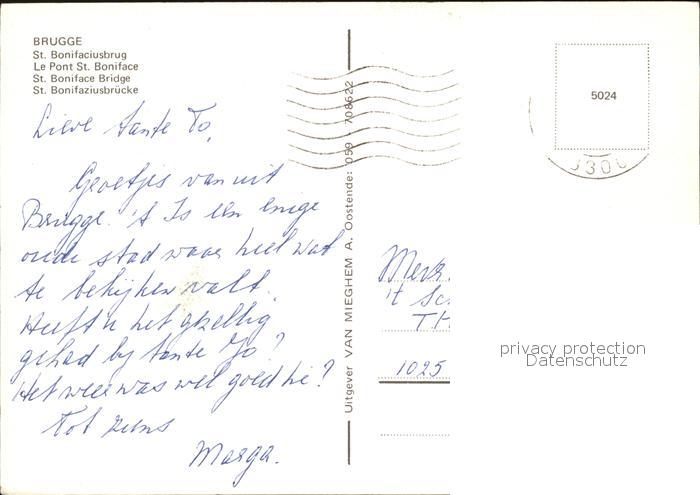 BRUGGE
St. Bonifaciusbrug
Le Pont St. Boniface
St. Boniface Bridge
St. Bonifaziusbrücke
Lieve tante To,
Groetjes vanuit
Brugge. 't Is een enige
oude stad waar heel wat
te bekijken valt.
Heeft u het gezellig
gehad bij tante Jo?
Het weer was wel goed hè?
Tot ziens
Marga.
Uitgever VAN MIEGHEM A. Oostende: 059 708622
5024
Mevr.
't Sc
TH
1025
privacy protection
Datenschutz